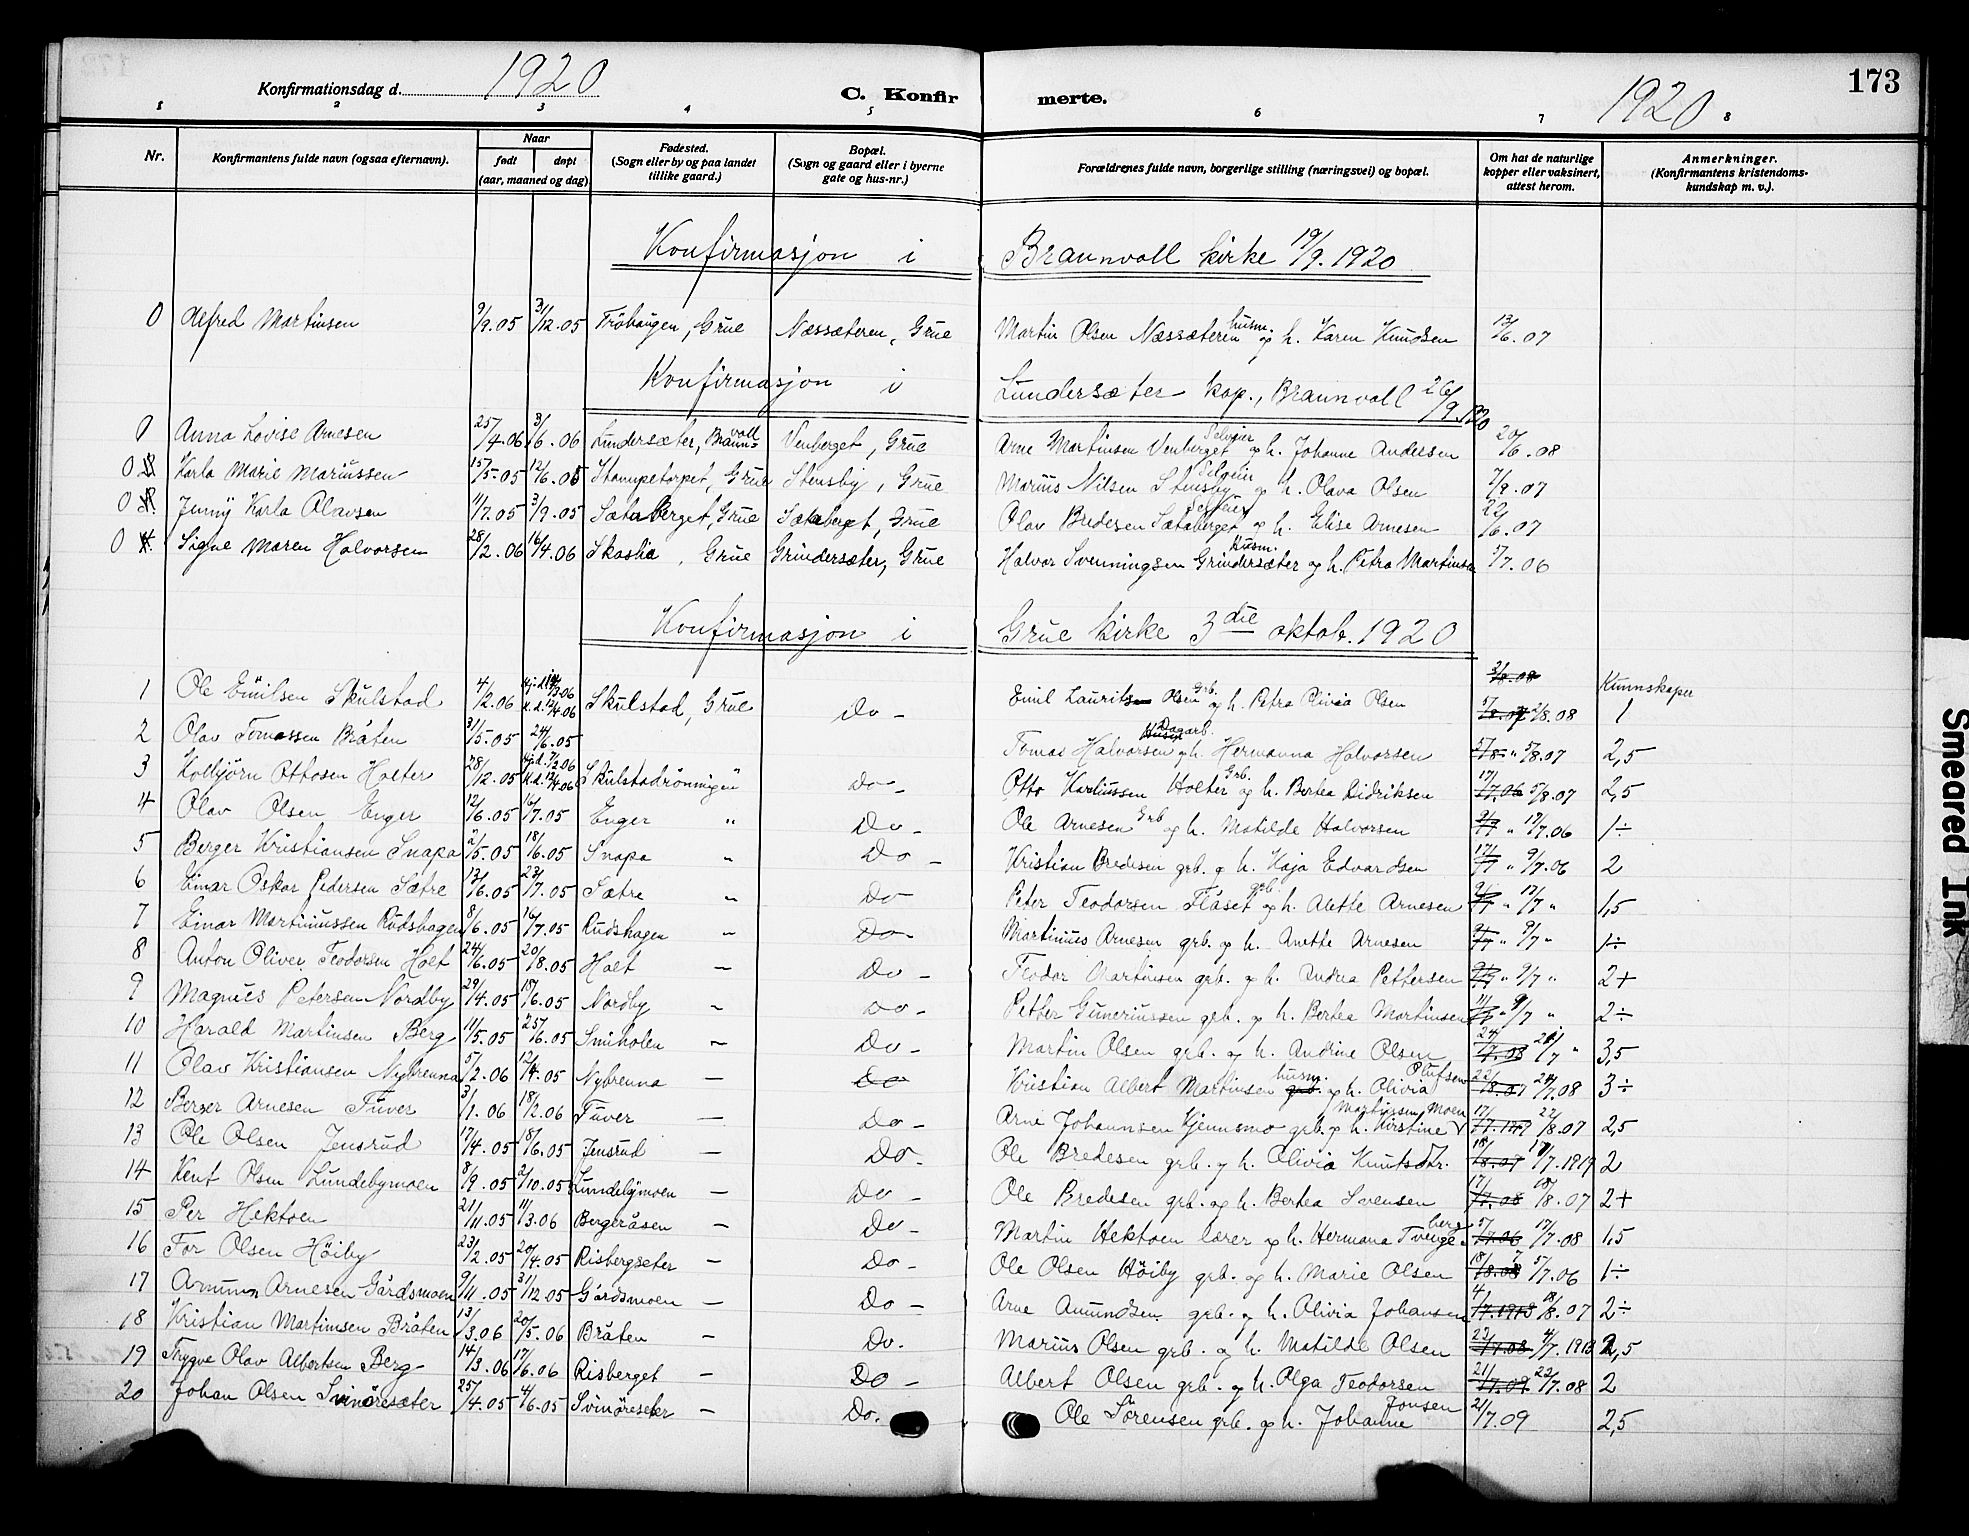 1920
1920
173
Konfirmationsdag d.
C. Konfir merte.
1 2 3 4 5 6 7 8
Nr.
Konfirmantens fulde navn (ogsaa efternavn).
Naar
født døpt
(aar, maaned og dag)
Fødested.
(Sogn eller by og paa landet
tillike gaard.)
Bopæl.
(Sogn og gaard eller i byerne
gate og hus-nr.)
Forældrenes fulde navn, borgerlige stilling (næringsvei) og bopæl.
Om hat de naturlige
kopper eller vaksinert,
attest herom.
Anmerkninger.
(Konfirmantens kristendoms-
kundskap m. v.).
Konfirmasjon i Brannvoll kirke 19/9. 1920
0 Alfred Martinsen 9/9.05 31/12.05 Tröhaugen, Grue Næssæteren, Grue Martin Olsen Næssæteren husm. og h. Karen Knudsen 13/6.07
Konfirmasjon i Lundersæter kap., Brannvoll 26/9.1920
0 Anna Lovise Arnesen 25/4.06 3/6.06 Lundersæter, Brannvoll Venberget, Grue Arne Martinsen Venberget Selveier og h. Johanne Andersen 20/6.08
0 Karla Marie Mariussen 15/5.05 12/6.05 Stompetorpet, Grue Stensby, Grue Marius Nilsen Stensby Selveier og h. Olava Olsen 7/9.07
0 Jenny Karla Olavsen 11/7.05 3/9.05 Sætaberget, Grue Sætaberget, Grue Olav Bredesen Sætaberget Selveier og h. Elise Arnesen 22/6.07
0 Signe Maren Halvorsen 28/2.06 16/4.06 Skaslia, Grue Grindersæter, Grue Halvor Svenningsen Grindersæter husm. og h. Petra Martinsen 5/7.06
Konfirmasjon i Grue kirke 3die oktob. 1920
Kunnskaper
1 Ole Emilsen Skulstad 4/2.06 Hj.d. 14/3.06 K.d. 12/4.06 Skulstad, Grue Do - Emil Lauritsen Olsen Grb. og h. Petra Olivia Olsen 2/8.08 1
2 Olav Tomassen Bråten 31/5.05 24/6.05 Tomas Halvorsen Dagarb. og h. Hermanna Halvorsen 5/8.07 2,5
3 Kolbjörn Ottosen Holter 28/12.05 Hj.d. 7/2.06 K.d. 12/4.06 Skulstadrönningen " Do - Otto Karlussen Holter Grb. og h. Bertea Didriksen 5/8.07 2,5
4 Olav Olsen Enger 12/6.05 16/7.05 Enger " Do - Ole Arnesen Grb og h. Matilde Halvorsen 17/7.06 1÷
5 Berger Kristiansen Snapa 2/5.05 18/6.05 Snapa " Do - Kristian Bredesen grb. og h. Kaja Edvardsen 9/7.06 2
6 Einar Oskar Pedersen Sætre 13/6.05 23/7.05 Sætre " Do Peter Teodorsen Flåset grb. og h. Alette Arnesen 17/7 " 1,5
7 Einar Martinussen Rudshagen 8/6.05 16/7.05 Rudshagen " Do - Martinus Arnesen grb. og h. Anette Arnesen 9/7 " 1÷
8 Anton Oliver Teodorsen Holt 24/6.05 20/8.05 Holt - Do - Teodor Martinsen grb. og h. Andrea Pettersen 9/7 " 2+
9 Magnus Petersen Nordby 29/4.05 18/6.05 Nordby - Do - Petter Gunerinssen grb. og h. Bertea Martinsen 9/7 " 2÷
10 Harald Martinsen Berg 11/5.05 25/6.05 Smiholen - Do - Martin Olsen grb. og h. Andrine Olsen 3,5
11 Olav Kristiansen Nybrenna 5/2.06 12/4.05 Nybrenna - Do Kristian Albert Martinsen husm. og h. Olivia Olufsen 3÷
12 Berger Arnesen Tuver 3/1.06 18/2.06 Tuver - Do - Arne Johannsen Kjensmo grb. og h. Kirstine Martinsen Moen 22/8.07 2,5
13 Ole Olsen Jensrud 17/4.05 18/6.05 Jensrud - Do - Ole Bredesen grb. og h. Olivia Knutsdtr. 2
14 Kent Olsen Lundebymoen 8/9.05 2/10.05 Lundebymoen - Do - Ole Bredesen grb. og h. Bertea Sörensen 18/8.07 2+
15 Per Hektoen 21/11.05 11/3.06 Bergeråsen - Do - Martin Hektoen lærer og h. Hermana Tvengsberg 17/7.08 1,5
16 Tor Olsen Höiby 23/2.05 20/4.05 Risbergseter - Do - Ole Olsen Höiby grb. og h. Marie Olsen 5/7.06 1÷
17 Amunn Arnesen Gårdsmoen 9/11.05 31/12.05 Gårdsmoen - Do - Arne Amundsen grb. og h. Olivia Johansen 18/8.07 2÷
18 Kristian Martinsen Bråten 13/3.06 20/5.06 Bråten - Do. Marius Olsen grb. og h. Matilde Olsen 4/7.1913 2,5
19 Trygve Olav Albertsen Berg 14/3.06 17/6.06 Risberget - Do - Albert Olsen grb. og h. Olga Teodorsen 22/7.08 2
20 Johan Olsen Svinöresæter 25/4.05 4/6.05 Svinöreseter - Do. Ole Sörensen grb. og h. Johanne Jonsen 21/7.09 2,5
Smeared Ink